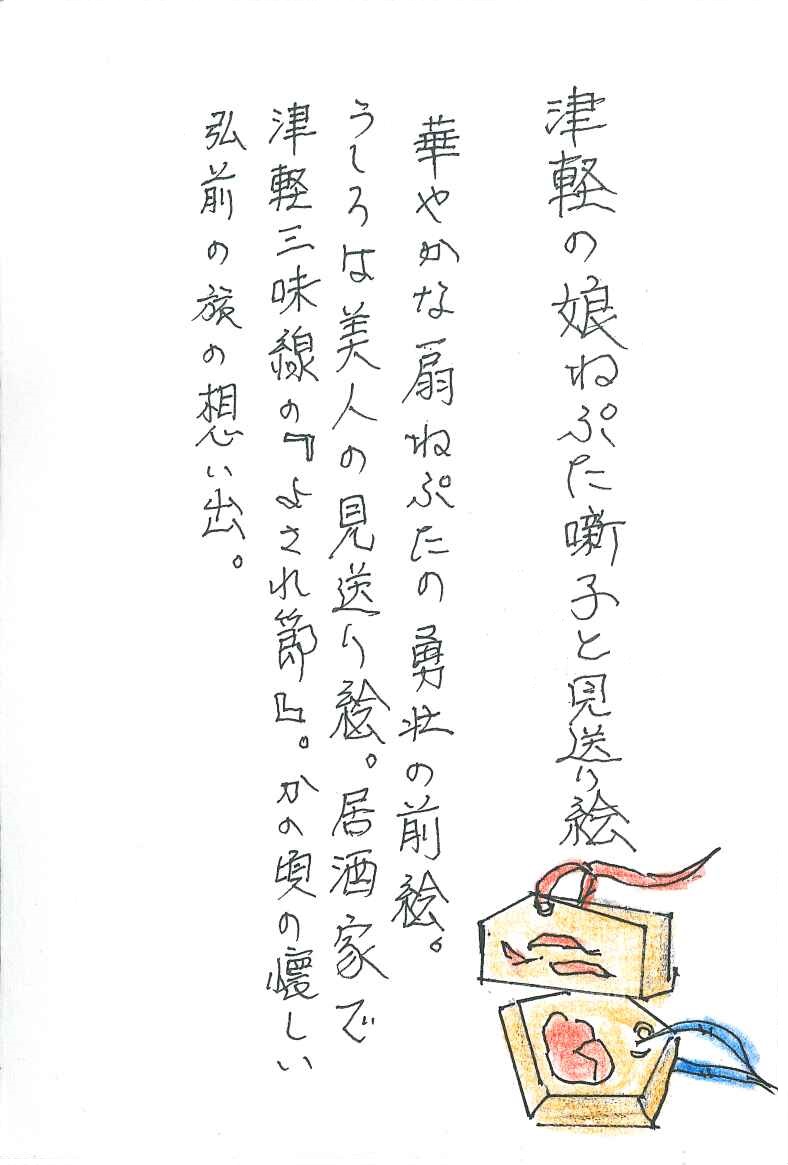 津軽の娘ねぷた噺子と見送り絵
華やかな扇ねぷたの勇壮の前絵。
うしろは美人の見送り絵。居酒家で
津軽三味線の『よされ節』。かの頃の懐しい
弘前の旅の想い出。